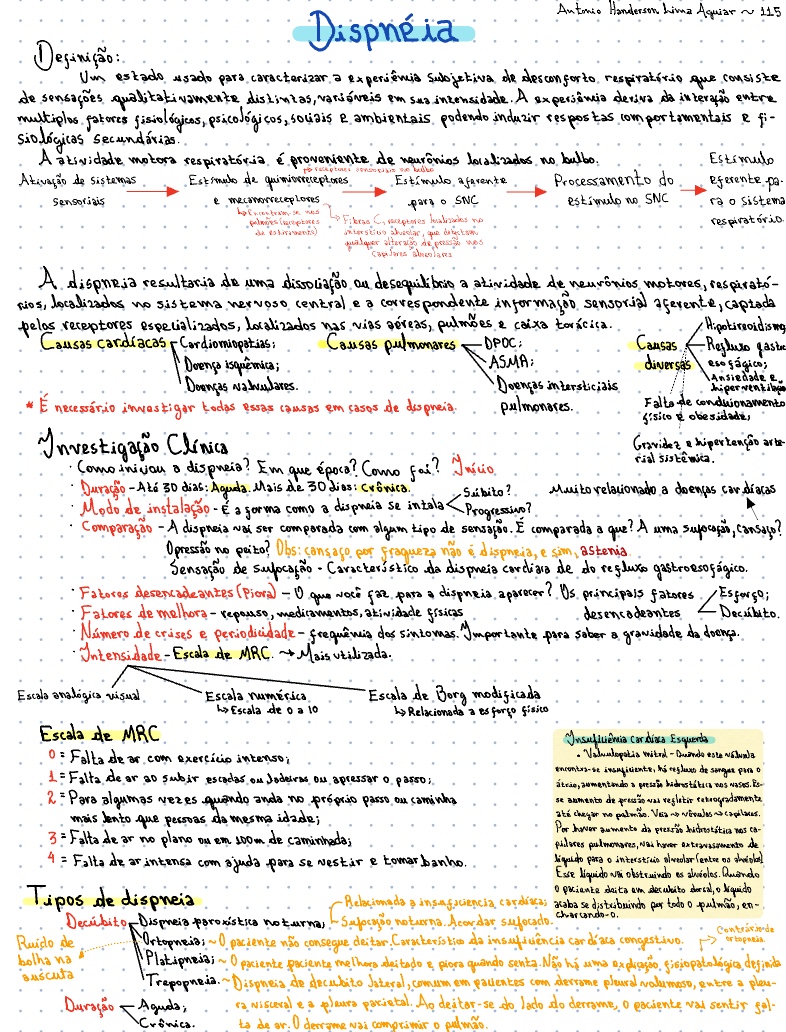 Antonio Handerson Lima Aguiar ~ 115
Dispnéia
Definição:
Um estado usado para caracterizar a experiência subjetiva de desconforto respiratório que consiste
de sensações qualitativamente distintas, variáveis em sua intensidade. A experiência deriva da interação entre
multiplos fatores fisiológicos, psicológicos, sociais e ambientais podendo induzir respostas comportamentais e fi-
siológicas secundárias.
A atividade motora respiratória é proveniente de neurônios localizados no bulbo.
receptores sensoriais no bulbo
Ativação de sistemas
sensoriais
Estímulo de quimiorreceptores
e mecanorreceptores
Encontram-se nos
pulmões (receptores
de estiramento)
Fibras C, receptores localizados no
interstício alveolar, que detectam
qualquer alteração de pressão nos
capilares alveolares
Estímulo aferente
para o SNC
Processamento do
estímulo no SNC
Estímulo
eferente pa-
ra o sistema
respiratório.
A dispneia resultaria de uma dissociação ou desequilíbrio a atividade de neurônios motores, respirató-
rios, localizados no sistema nervoso central e a correspondente informação sensorial aferente, captada
pelos receptores especializados, localizados nas vias aéreas, pulmões e caixa torácica.
Causas cardíacas
Cardiomiopatias;
Doença isquêmica;
Doenças valvulares.
Causas pulmonares
DPOC;
ASMA;
Doenças intersticiais
pulmonares.
Causas
diversas
Hipotireoidismo
Refluxo gastr
esofágico;
Ansiedade e
hiperventilação
Falta de condicionamento
físico e obesidade;
Gravidez e hipertenção arte-
rial sistêmica.
* É necessário investigar todas essas causas em casos de dispneia.
Investigação Clínica
· Como iniciou a dispneia? Em que época? Como foi? Início
· Duração - Até 30 dias: Aguda. Mais de 30 dias: Crônica.
· Modo de instalação - É a forma como a dispneia se intala
Súbito?
Progressivo?
Muito relacionado a doenças cardíacas
· Comparação - A dispneia vai ser comparada com algum tipo de sensação. É comparada a que? A uma sufocação, cansaço?
Opressão no peito? Obs: cansaço por fraqueza não é dispneia, e sim, astenia.
Sensação de sufocação - Característico da dispneia cardíaca de do refluxo gastroesofágico.
· Fatores desencadeantes (Piora) - O que você faz para a dispneia aparecer? Os principais fatores
desencadeantes
Esforço;
Decúbito.
· Fatores de melhora - repouso, medicamentos, atividade físicas
· Número de crises e periodicidade - frequência dos sintomas. Importante para saber a gravidade da doença.
· Intensidade - Escala de MRC. → Mais utilizada.
Escala analógica visual
Escala numérica
↳ Escala de 0 a 10
Escala de Borg modificada
↳ Relacionada a esforço físico
Escala de MRC
0 = Falta de ar com exercício intenso;
1 = Falta de ar ao subir escadas ou ladeiras ou apressar o passo;
2 = Para algumas vezes quando anda no próprio passo ou caminha
mais lento que pessoas da mesma idade;
3 = Falta de ar no plano ou em 100m de caminhada;
4 = Falta de ar intensa com ajuda para se vestir e tomar banho.
Insuficiência Cardíaca Esquerda
• Valvulopatia mitral - Quando esta válvula
encontra-se insuficiente, há refluxo de sangue para o
átrio, aumentando a pressão hidrostática nos vasos. Es-
se aumento de pressão vai refletir retrogradamente
até chegar no pulmão. Veia → vênulas → capilares.
Por haver aumento da pressão hidrostática nos ca-
pilares pulmonares, vai haver extravasamento de
líquido para o interstício alveolar (entre os alvéolos)
Esse líquido vai obstruindo os alvéolos. Quando
o paciente deita em decúbito dorsal, o líquido
acaba se distribuindo por todo o pulmão, en-
charcando-o.
Tipos de dispneia
Decúbito
Ruído de
bolha na
auscuta
Dispneia paroxística noturna;
Relacionada a insuficiencia cardíaca;
Sufocação noturna. Acordar sufocado.
Ortopneia; ~ O paciente não consegue deitar. Característico da insuficiência cardíaca congestivo.
Contrário de
ortopneia.
Platipneia; ~ O paciente paciente melhora deitado e piora quando senta. Não há uma explicação fisiopatológica definida
Trepopneia. ~ Dispneia de decúbito lateral, comum em pacientes com derrame pleural volumoso, entre a pleu-
ra visceral e a pleura parietal. Ao deitar-se do lado do derrame, o paciente vai sentir fal-
ta de ar. O derrame vai comprimir o pulmão.
Duração
Aguda;
Crônica.